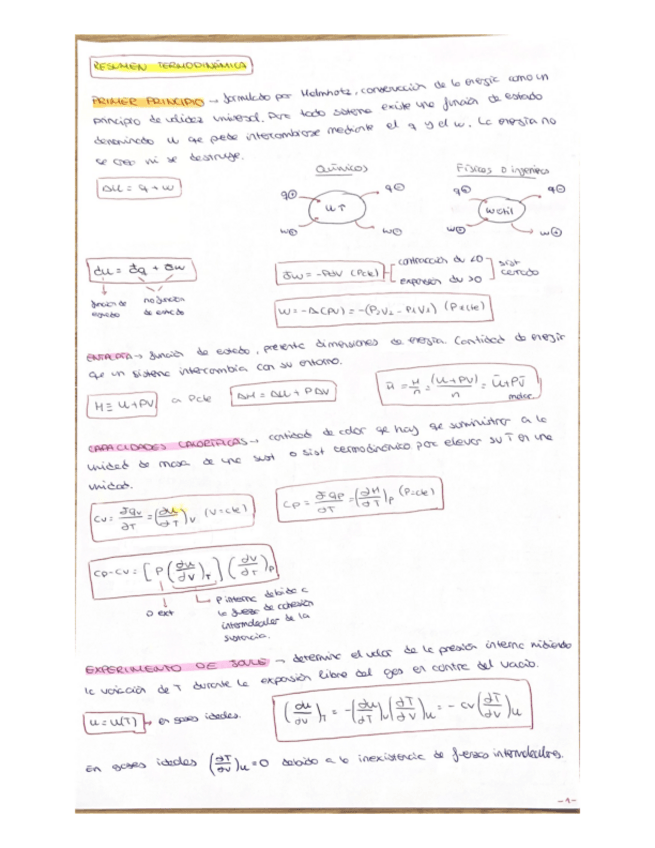 RESUMEN TERMODINÁMICA
PRIMER PRINCIPIO → formulado por Helmholtz, conservación de la energía como un
principio de validez universal. Para todo sistema existe una función de estado
denominada U que puede intercambiarse mediante el q y el w. La energía no
se crea ni se destruye.
Químicos Físicos o ingenieros
ΔU = q + w
q⊕ q⊖ q⊕ q⊖
U T W útil
w⊕ w⊖ w⊖ w⊕
du = đq + đw
función de estado
no función de estado
đw = -PdV (P cte)
contracción dv<0
expansión dv>0
sist cerrado
W = -Δ(PV) = -(P₂V₂ - P₁V₁) (P cte)
ENTALPÍA → función de estado, presenta dimensiones de energía. Cantidad de energía
que un sistema intercambia con su entorno.
H ≡ U + PV a P cte ΔH = ΔU + PΔV H̄ = H/n = (U+PV)/n = Ū + PV̄
CAPACIDADES CALORÍFICAS → cantidad de calor que hay que suministrar a la
unidad de masa de una sust o sist termodinámico para elevar su T en una
unidad.
Cv = đqv/∂T = (∂u/∂T)v (V = cte) Cp = đqp/∂T = (∂H/∂T)p (P = cte)
Cp - Cv = [P (∂u/∂V)T] (∂V/∂T)p
O ext
P interna debida a
la fuerza de cohesión
intermolecular de la
sustancia.
EXPERIMENTO DE JOULE → determina el valor de la presión interna midiendo
la variación de T durante la expansión libre del gas en contra del vacío.
U = U(T) → en gases ideales. (∂u/∂v)T = -(∂u/∂T)v (∂T/∂V)u = -Cv (∂T/∂V)u
En gases ideales (∂T/∂V)u = 0 debido a la inexistencia de fuerzas intermoleculares.
-1-